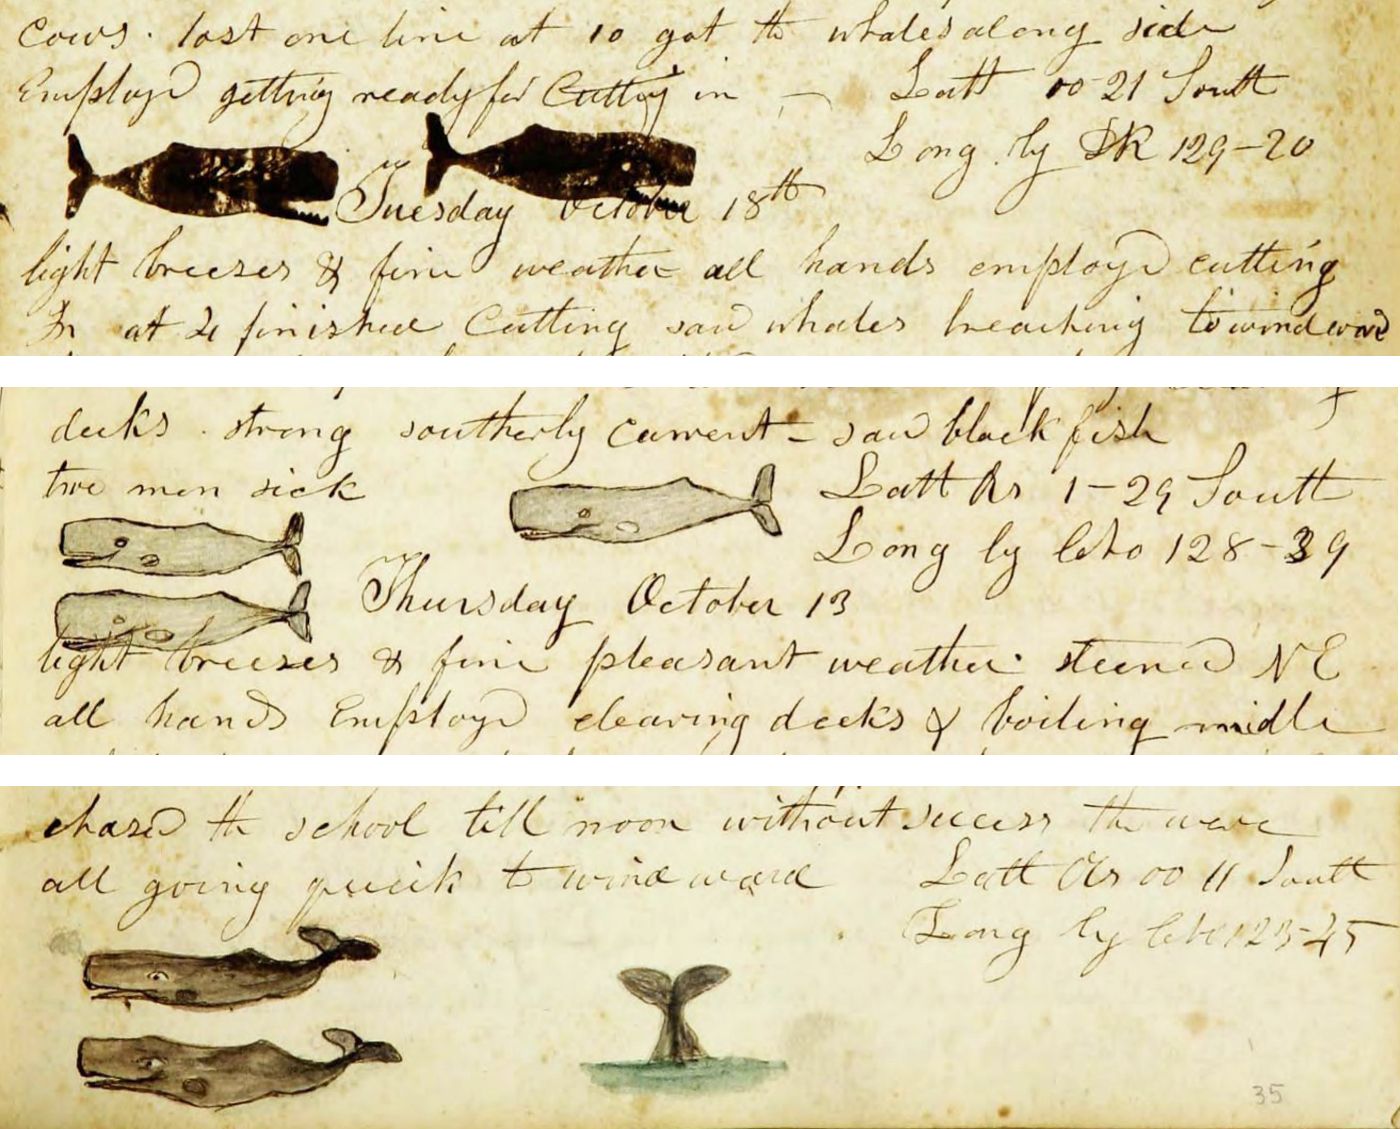 cows. lost one line at 10 got th whales along side
Employd getting ready for Cutting in — Latt 00 21 South
Long by DR 129-20
Tuesday October 18th
light breezes & fine weather all hands employd cutting
In at 4 finished Cutting saw whales breaching to windward
decks. strong southerly current - saw black fish
two men sick Latt Obs 1-29 South
Long by Chro 128-39
Thursday October 13
light breezes & fine pleasant weather steered NE
all hands Employd clearing decks & boiling midle
chased th school till noon without success the were
all going quick to windward Latt Obs 00 11 South
Long by Chro 123-45
35